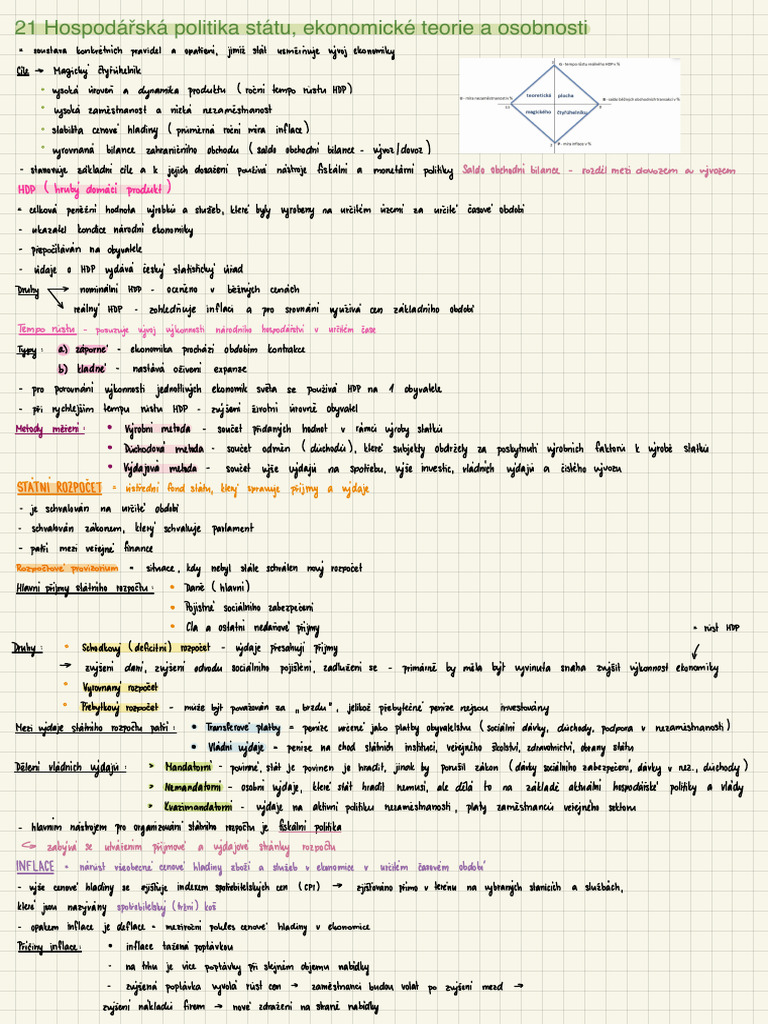 21 Hospodářská politika státu, ekonomické teorie a osobnosti
= soustava konkrétních pravidel a opatření, jimiž stát usměrňuje vývoj ekonomiky
Cíle → Magický čtyřúhelník
• vysoká úroveň a dynamika produktu (roční tempo růstu HDP)
• vysoká zaměstnanost a nízká nezaměstnanost
• stabilita cenové hladiny (průměrná roční míra inflace)
• vyrovnaná bilance zahraničního obchodu (saldo obchodní bilance - vývoz/dovoz)
G - tempo růstu reálného HDP v %
teoretická plocha
magického čtyřúhelníku
P - míra inflace v %
- stanovuje základní cíle a k jejich dosažení používá nástroje fiskální a monetární politiky Saldo obchodní bilance - rozdíl mezi dovozem a vývozem
HDP (hrubý domácí produkt)
= celková peněžní hodnota výrobků a služeb, které byly vyrobeny na určitém území za určité časové období
- ukazatel kondice národní ekonomiky
- přepočítáván na obyvatele
- údaje o HDP vydává český statistický úřad
Druhy → nominální HDP - oceněno v běžných cenách
reálný HDP - zohledňuje inflaci a pro srovnání využívá cen základního období
Tempo růstu - posuzuje vývoj výkonnosti národního hospodářství v určitém čase
Typy: a) záporné - ekonomika prochází obdobím kontrakce
b) kladné - nastává oživení expanze
- pro porovnání výkonnosti jednotlivých ekonomik světa se používá HDP na 1 obyvatele
- při rychlejším tempu růstu HDP - zvýšení životní úrovně obyvatel
Metody měření: • Výrobní metoda - součet přidaných hodnot v rámci výroby statků
• Důchodová metoda - součet odměn (důchodů), které subjekty obdržely za poskytnutí výrobních faktorů k výrobě statků
• Výdajová metoda - součet výše výdajů na spotřebu, výše investic, vládních výdajů a čistého vývozu
STÁTNÍ ROZPOČET = ústřední fond státu, který spravuje příjmy a výdaje
- je schvalován na určité období
- schvalován zákonem, který schvaluje parlament
- patří mezi veřejné finance
Rozpočtové provizorium = situace, kdy nebyl stále schválen nový rozpočet
Hlavní příjmy státního rozpočtu: • Daně (hlavní)
• Pojistné sociálního zabezpečení
• Cla a ostatní nedaňové příjmy
= růst HDP
Druhy: • Schodkový (deficitní) rozpočet - výdaje přesahují příjmy
→ zvýšení daní, zvýšení odvodu sociálního pojištění, zadlužení se - primárně by měla být vyvinuta snaha zvýšit výkonnost ekonomiky
• Vyrovnaný rozpočet
• Přebytkový rozpočet - může být považován za „brzdu", jelikož přebytečné peníze nejsou investovány
Mezi výdaje státního rozpočtu patří: • Transferové platby = peníze určené jako platby obyvatelstvu (sociální dávky, důchody, podpora v nezaměstnanosti)
• Vládní výdaje - peníze na chod státních institucí, veřejného školství, zdravotnictví, obrany státu
Dělení vládních výdajů: > Mandatorní - povinné, stát je povinen je hradit, jinak by porušil zákon (dávky sociálního zabezpečení, dávky v nez., důchody)
> Nemandatorní - osobní výdaje, které stát hradit nemusí, ale dělá to na základě aktuální hospodářské politiky a vlády
> Kvazimandatorní - výdaje na aktivní politiku nezaměstnanosti, platy zaměstnanců veřejného sektoru
- hlavním nástrojem pro organizování státního rozpočtu je fiskální politika
↪ zabývá se utvářením příjmové a výdajové stránky rozpočtu
INFLACE = nárůst všeobecné cenové hladiny zboží a služeb v ekonomice v určitém časovém období
- výše cenové hladiny se zjišťuje indexem spotřebitelských cen (CPI) → zjišťováno přímo v terénu na vybraných stanicích a službách,
které jsou nazývány spotřebitelský (tržní) koš
- opakem inflace je deflace = meziroční pokles cenové hladiny v ekonomice
Příčiny inflace: • inflace tažená poptávkou
- na trhu je více poptávky při stejném objemu nabídky
- zvýšená poptávka vyvolá růst cen → zaměstnanci budou volat po zvýšení mezd →
zvýšení nákladů firem → nové zdražení na straně nabídky